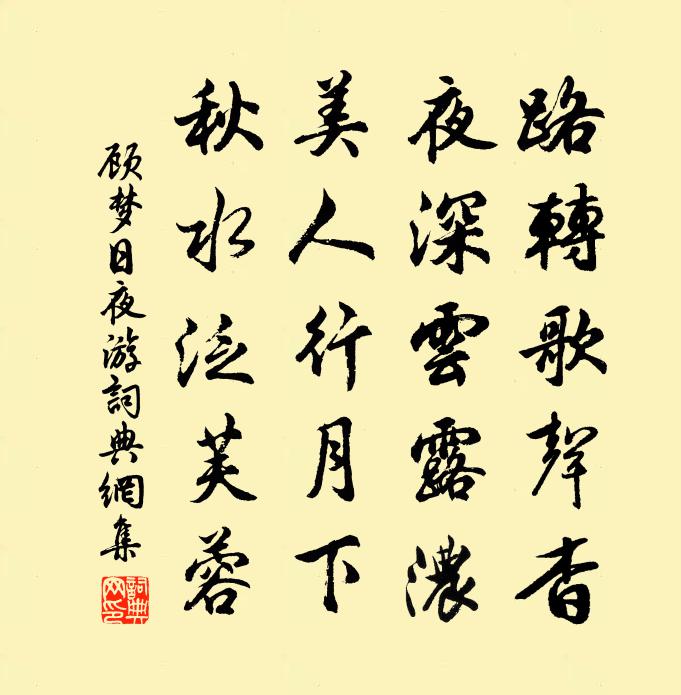 路轉歌聲杳
夜深雲露濃
美人行月下
秋水泛芙蓉
顾梦日夜游詞典網集
詞典網印